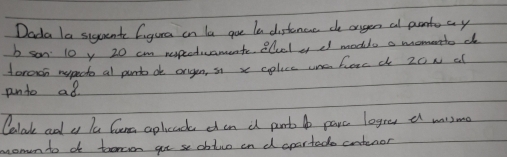 Dada la siguiente figura en la que la distancia de origen al punto a y
b son: 10 y 20 cm respectivamente ¿Cual es el modulo o momento de
torsión respecto al punto de origen, si se aplica una fuerza de 20 N al
punto a?
Calcule cual es la fuerza aplicada en el punto b para lograr el mismo
momento de torsion que se obtuvo en el apartado anterior